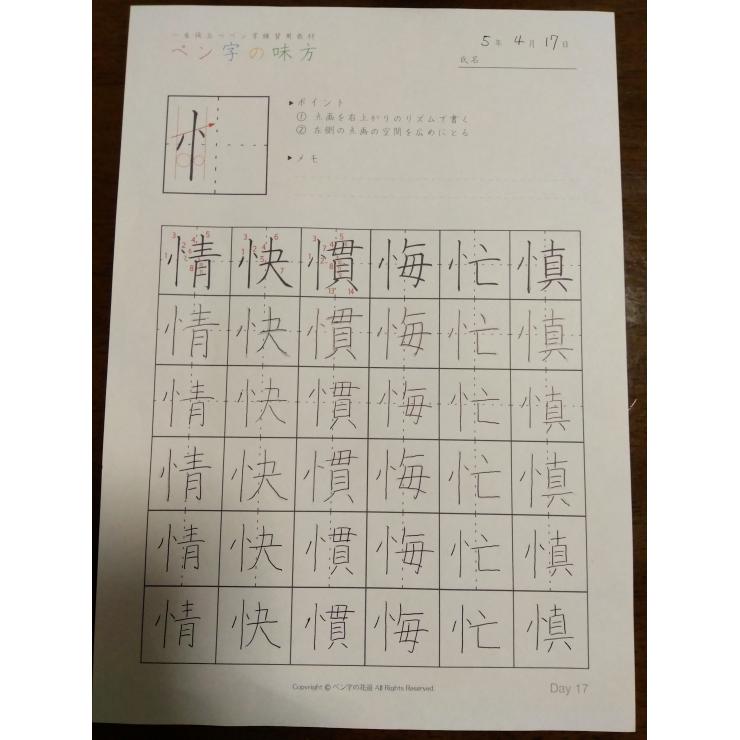 一生役立つペン字練習用教材
ペン字の味方
5年 4月 17日
氏名
▶ポイント
① 点画を右上がりのリズムで書く
② 左側の点画の空間を広めにとる
▶メモ
忄
情 快 慣 悔 忙 慎
情 快 慣 悔 忙 慎
情 快 慣 悔 忙 慎
情 快 慣 悔 忙 慎
情 快 慣 悔 忙 慎
情 快 慣 悔 忙 慎
Copyright © ペン字の花道 All Rights Reserved.
Day 17